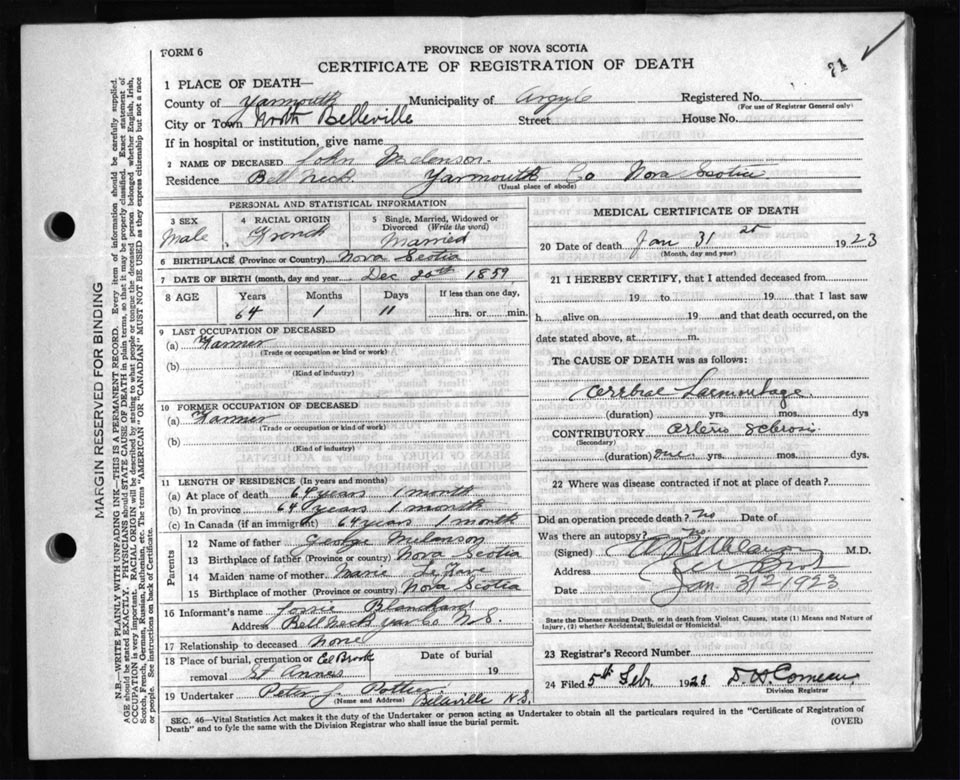 FORM 6
PROVINCE OF NOVA SCOTIA
CERTIFICATE OF REGISTRATION OF DEATH
71
1 PLACE OF DEATH—
County of Yarmouth Municipality of Argyle Registered No.
(For use of Registrar General only)
City or Town North Belleville Street House No.
If in hospital or institution, give name
2 NAME OF DECEASED John Melenson.
Residence Bell Neck. Yarmouth Co Nova Scotia
(Usual place of abode)
PERSONAL AND STATISTICAL INFORMATION
3 SEX Male
4 RACIAL ORIGIN French
5 Single, Married, Widowed or Divorced (Write the word) Married
6 BIRTHPLACE (Province or Country) Nova Scotia
7 DATE OF BIRTH (month, day and year) Dec 20th 1859
8 AGE Years Months Days If less than one day,
64 1 11 hrs. or min.
9 LAST OCCUPATION OF DECEASED
(a) Farmer
(Trade or occupation or kind or work)
(b)
(Kind of industry)
10 FORMER OCCUPATION OF DECEASED
(a) Farmer
(Trade or occupation or kind or work)
(b)
(Kind of industry)
11 LENGTH OF RESIDENCE (In years and months)
(a) At place of death 64 years 1 month
(b) In province 64 years 1 month
(c) In Canada (if an immigrant) 64 years 1 month
Parents
12 Name of father George Melanson
13 Birthplace of father (Province or country) Nova Scotia
14 Maiden name of mother Marie LeFave
15 Birthplace of mother (Province or country) Nova Scotia
16 Informant's name Blanchard
Address Bell Neck Yar Co N.S.
17 Relationship to deceased None
18 Place of burial, cremation or removal Eel Brook St Annes Date of burial 19
19 Undertaker Peter J. Pottier Belleville N.S.
(Name and Address)
MEDICAL CERTIFICATE OF DEATH
20 Date of death Jan 31 st 1923
(Month, day and year)
21 I HEREBY CERTIFY, that I attended deceased from
19 to 19 that I last saw
h alive on 19 and that death occurred, on the
date stated above, at m.
The CAUSE OF DEATH was as follows:
Cerebral Haemorhage
(duration) yrs. mos. dys
CONTRIBUTORY Arterio Sclerosis
(Secondary)
(duration) one yrs. mos. dys.
22 Where was disease contracted if not at place of death?
Did an operation precede death? no Date of
Was there an autopsy? no
(Signed) M.D.
Address
Date Jan. 31 1923
State the Disease causing Death, or in death from Violent Causes, state (1) Means and Nature of Injury, (2) whether Accidental, Suicidal or Homicidal.
23 Registrar's Record Number
24 Filed 5th Feb. 1923 D. H. Comeau
Division Registrar
SEC. 46—Vital Statistics Act makes it the duty of the Undertaker or person acting as Undertaker to obtain all the particulars required in the "Certificate of Registration of Death" and to fyle the same with the Division Registrar who shall issue the burial permit.
(OVER)
MARGIN RESERVED FOR BINDING
N.B.—WRITE PLAINLY WITH UNFADING INK—THIS IS A PERMANENT RECORD. Every item of information should be carefully supplied. AGE should be stated EXACTLY. PHYSICIANS should STATE CAUSE OF DEATH in plain terms, so that it may be properly classified. Exact statement of OCCUPATION is very important. RACIAL ORIGIN will be described by stating to what people or tongue the deceased person belonged whether English, Irish, Scotch, French, German, Russian, Ruthenian, etc. The terms "AMERICAN" OR "CANADIAN" MUST NOT BE USED as they express citizenship but not a race or people. See instructions on back of Certificate.